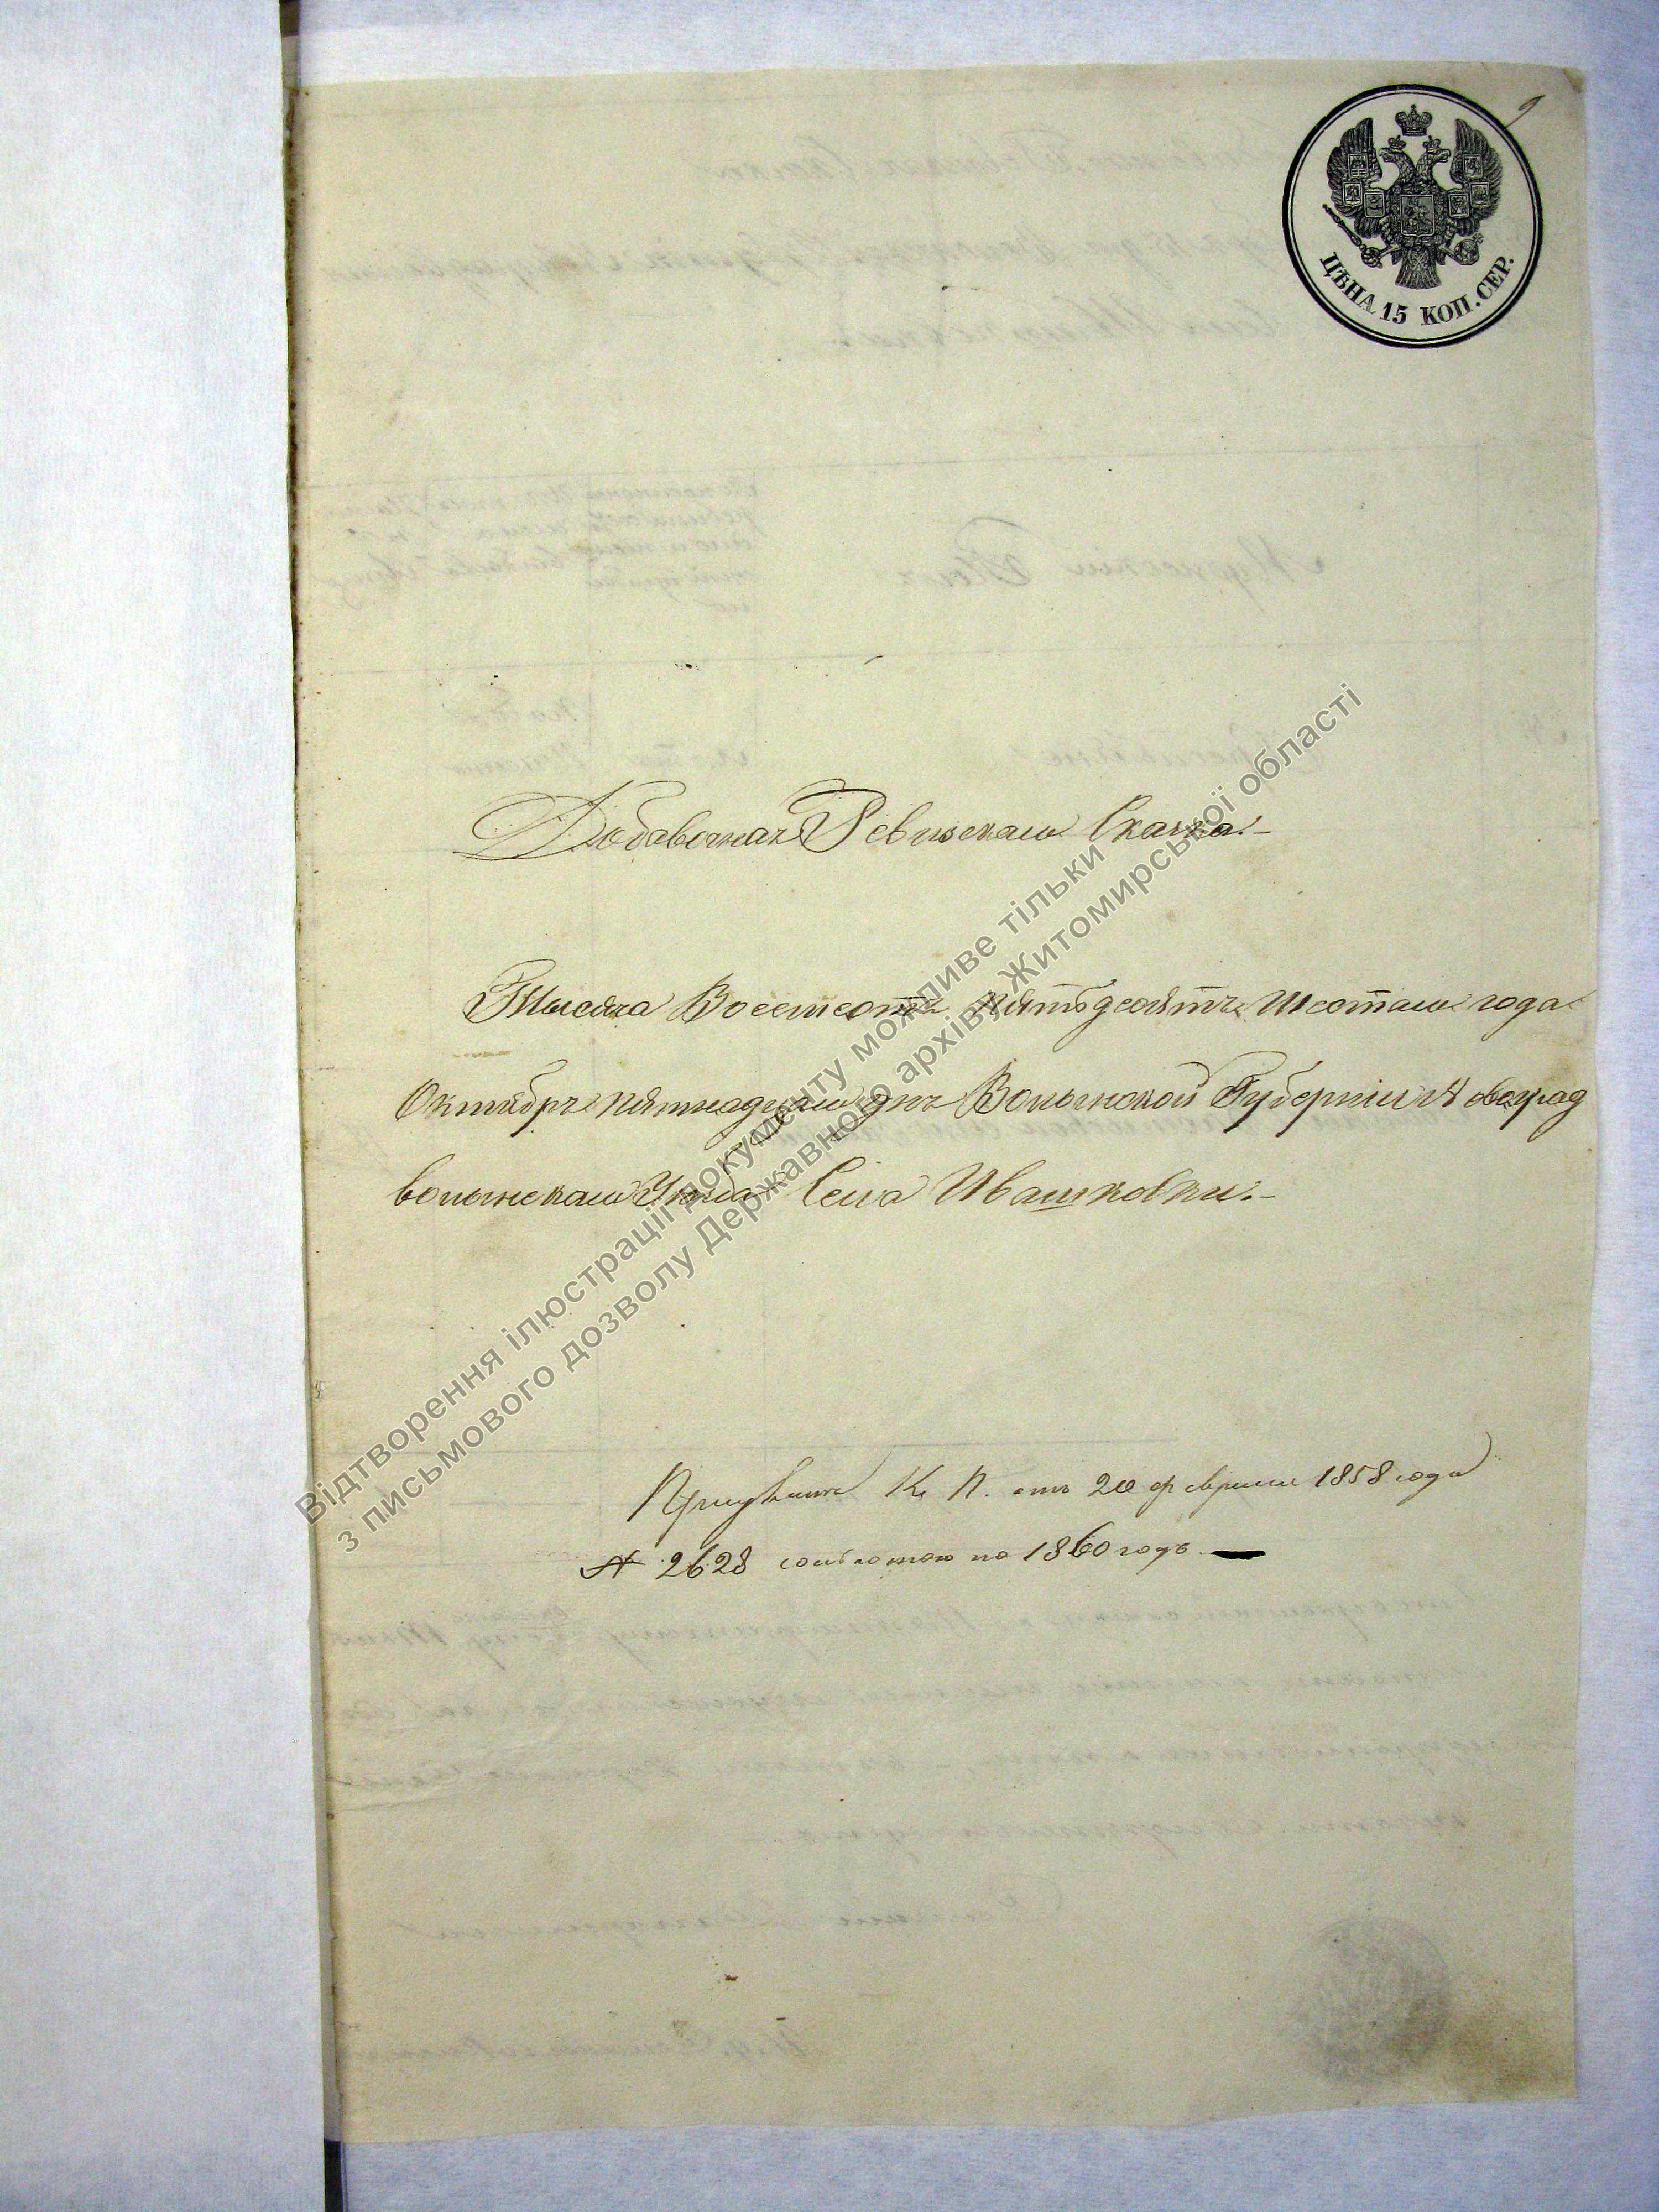 9
ЦѢНА 15 КОП. СЕР.
Добавочная Ревизская Сказка.
Тысяча Восемсотъ пятьдесятъ шестаго года
Октября пятнадцаго дня Волынской Губерніи Новоград
волынскаго Уѣзда Села Ивашковки.
К. П. отъ 20 февраля 1858 года
№ 2628 со льготою по 1860 годъ.
Відтворення ілюстрації документу можливе тільки
з письмового дозволу Державного архіву Житомирської області